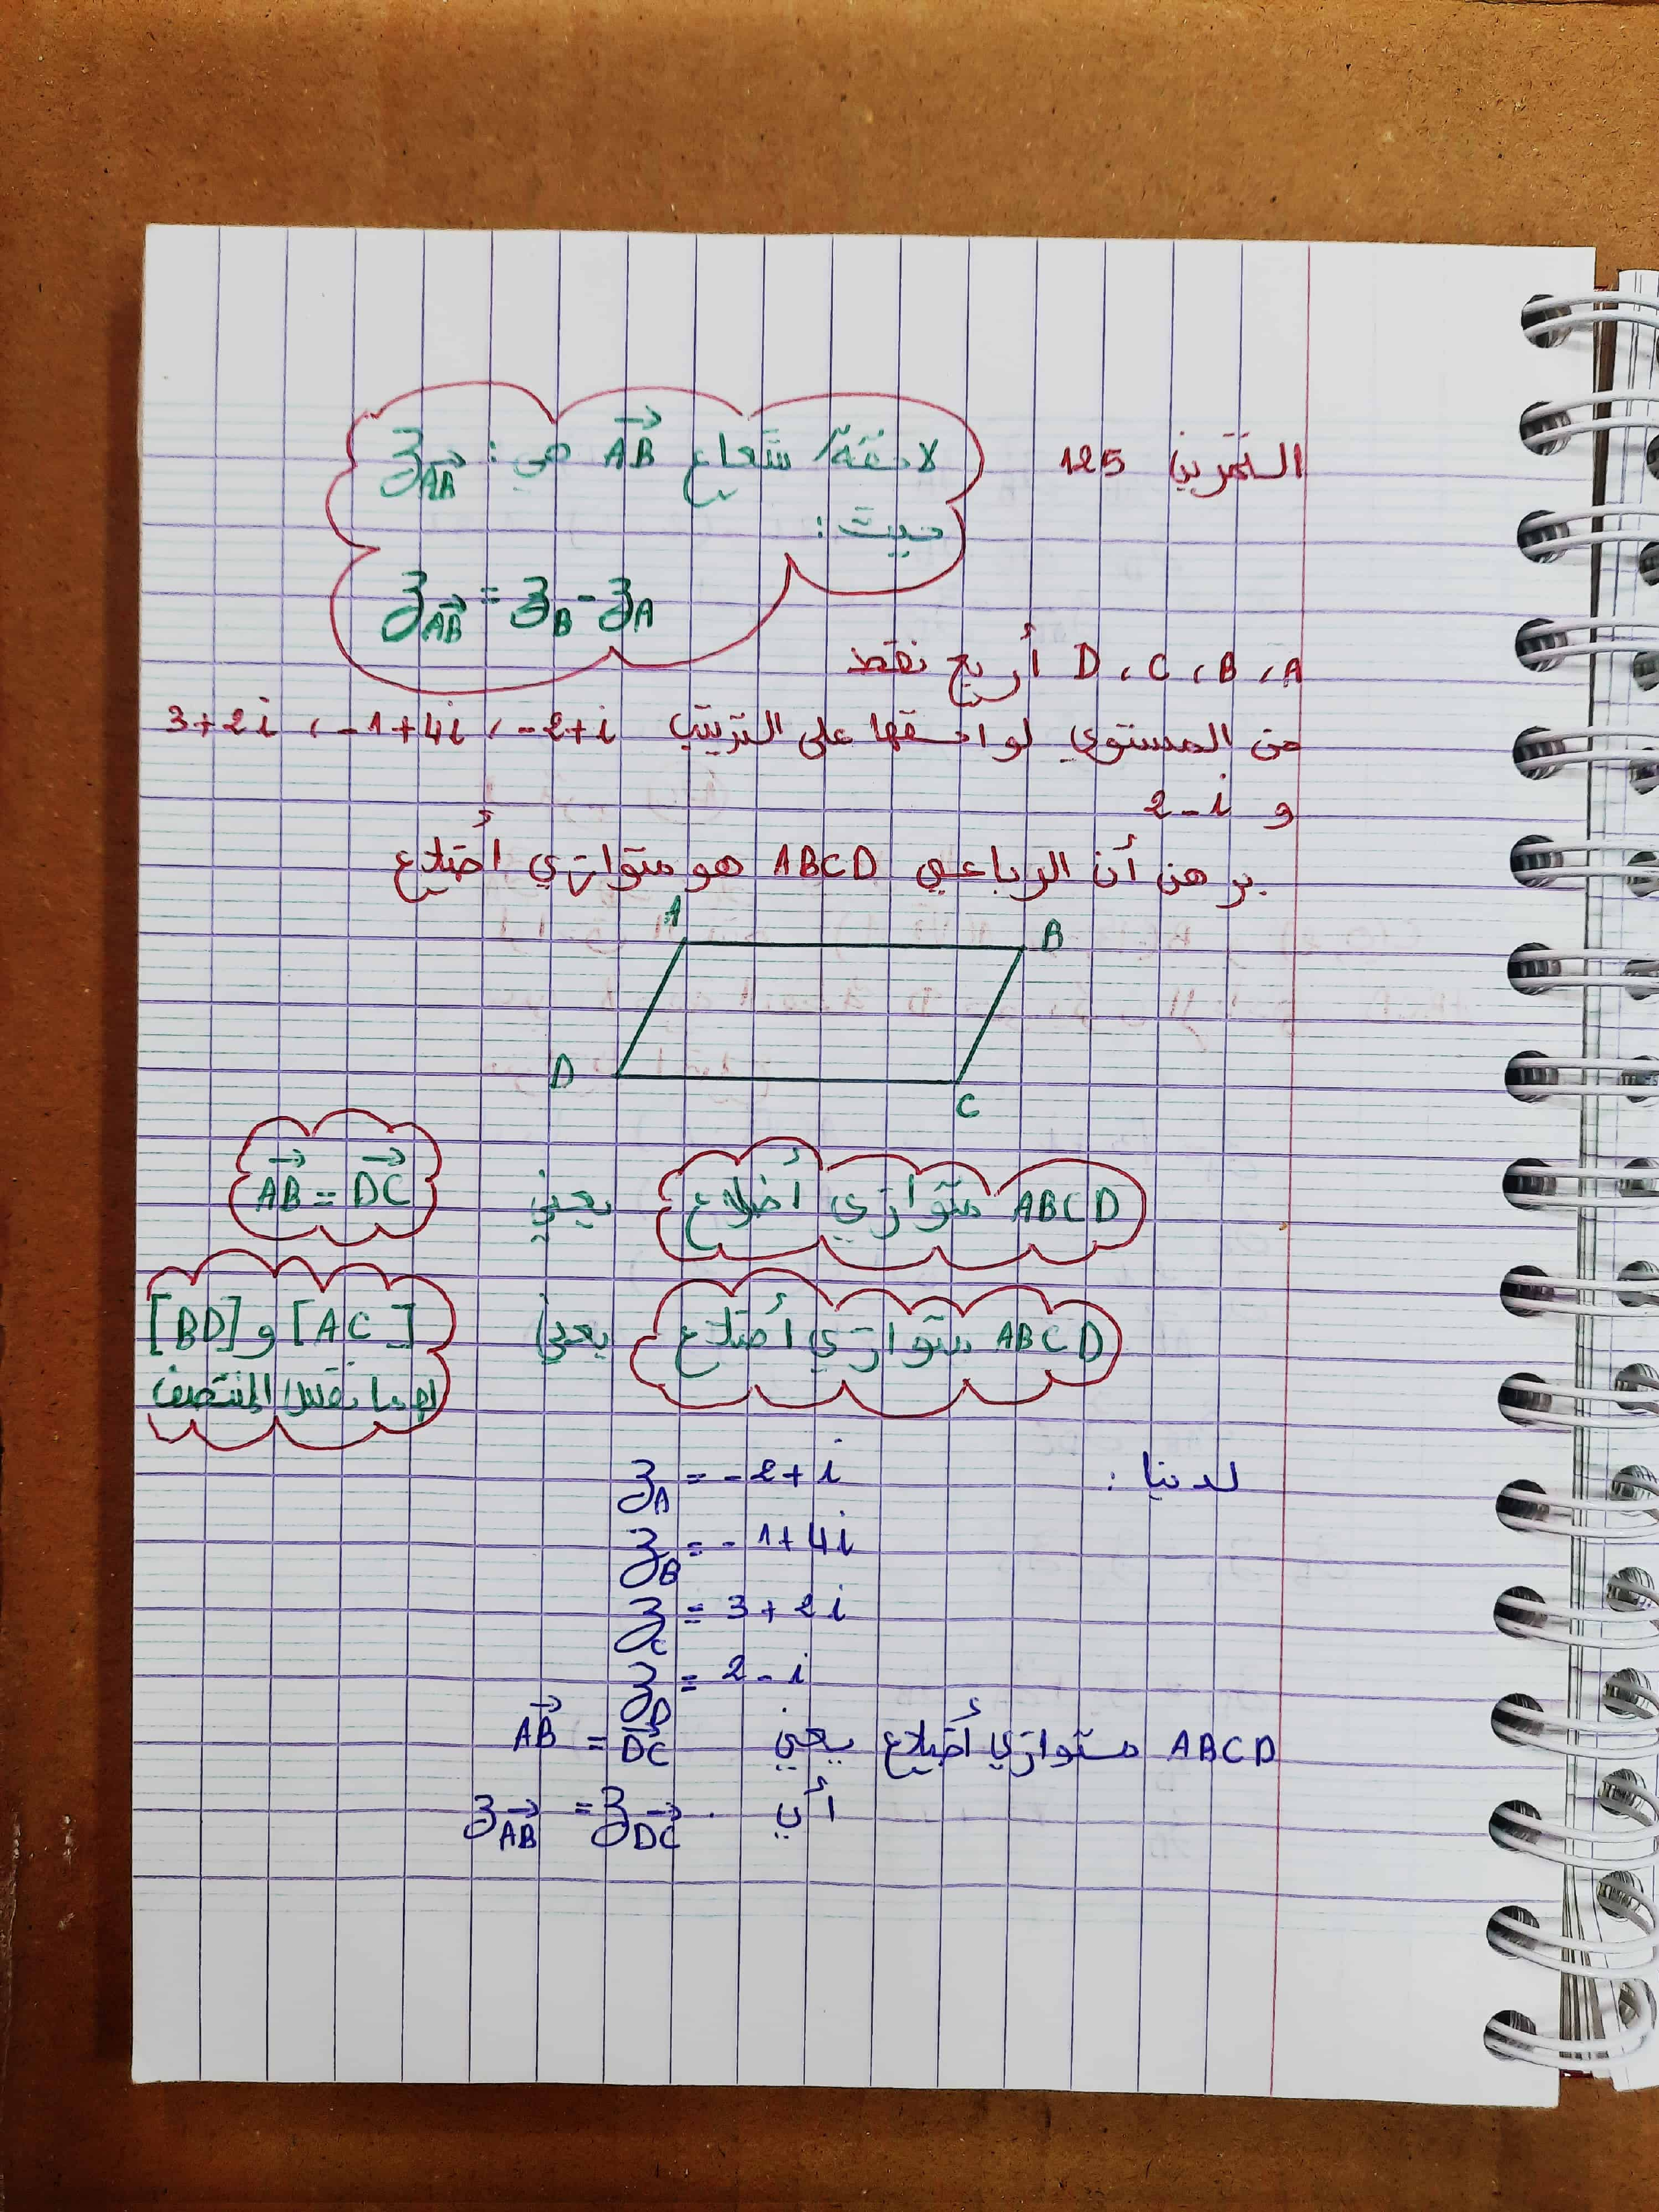 التمرين 125
لاحقة شعاع AB هي: z AB
حيث:
z AB = z B - z A
A ، B ، C ، D أربع نقط
من المستوي لواحقها على الترتيب -2+i ، -1+4i ، 3+2i
و 2-i
برهن أن الرباعي ABCD هو متوازي أضلاع
A
B
D
C
ABCD متوازي أضلاع يعني AB = DC
ABCD متوازي أضلاع يعني [AC] و [BD]
لهما نفس المنتصف
لدينا : z A = -2+i
z B = -1+4i
z C = 3+2i
z D = 2-i
ABCD متوازي أضلاع يعني AB = DC
أي z AB = z DC